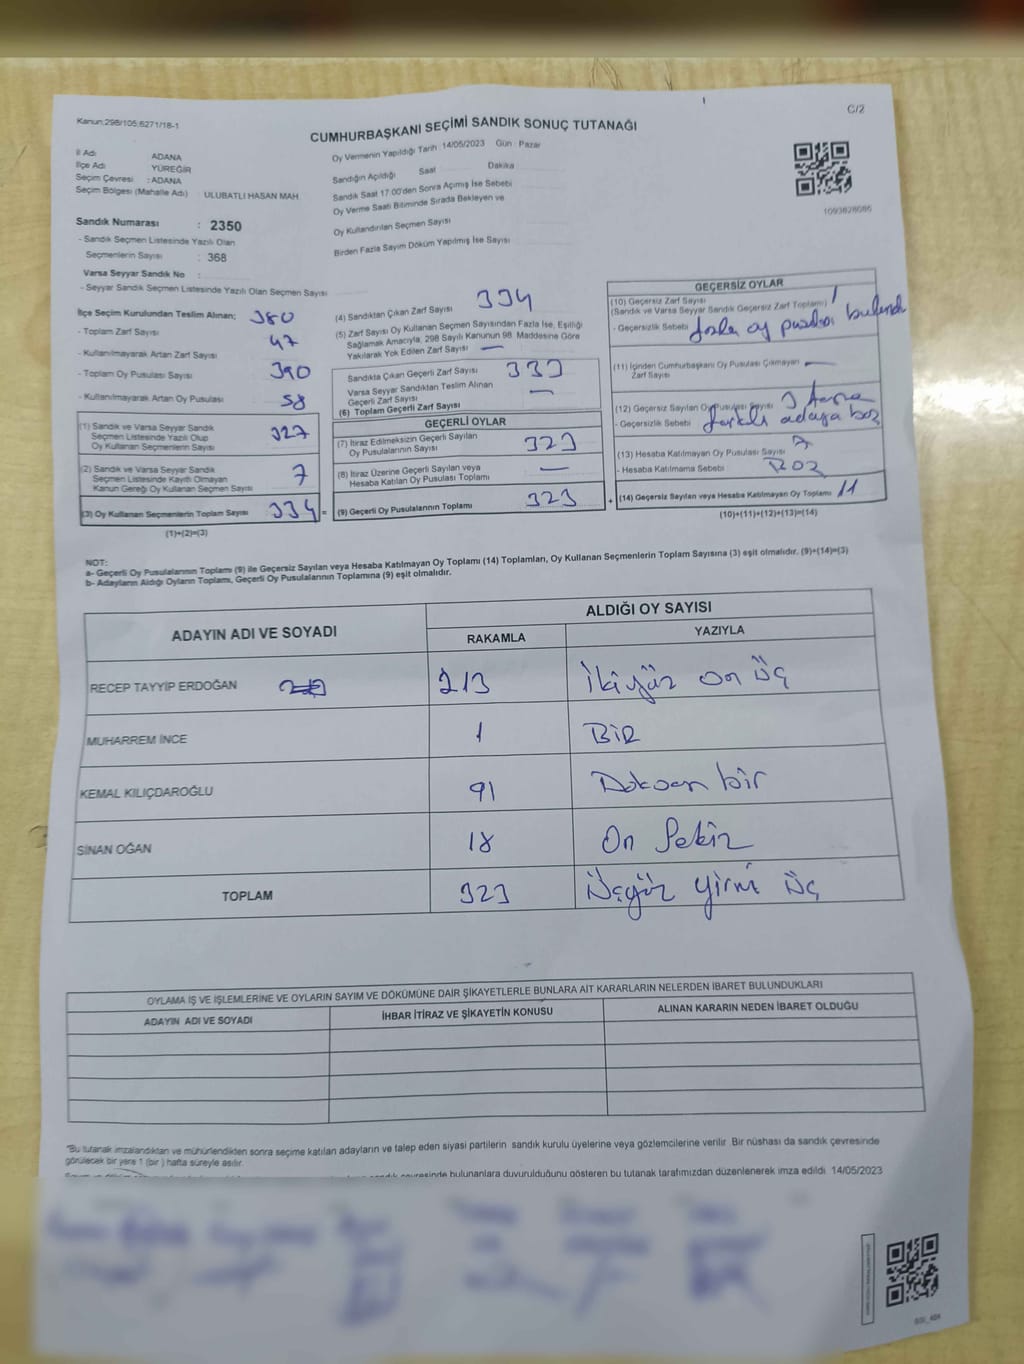 Kanun:298/105;6271/18-1
C/2
CUMHURBAŞKANI SEÇİMİ SANDIK SONUÇ TUTANAĞI
İl Adı ADANA
İlçe Adı YÜREĞİR
Seçim Çevresi : ADANA
Seçim Bölgesi (Mahalle Adı) ULUBATLI HASAN MAH.
Sandık Numarası : 2350
- Sandık Seçmen Listesinde Yazılı Olan
Seçmenlerin Sayısı : 368
Varsa Seyyar Sandık No :
- Seyyar Sandık Seçmen Listesinde Yazılı Olan Seçmen Sayısı
Oy Vermenin Yapıldığı Tarih 14/05/2023 Gün : Pazar
Sandığın Açıldığı Saat Dakika
Sandık Saat 17:00'den Sonra Açımış İse Sebebi
Oy Verme Saati Bitiminde Sırada Bekleyen ve
Oy Kullandırılan Seçmen Sayısı
Birden Fazla Sayım Döküm Yapılmış İse Sayısı
1093828086
İlçe Seçim Kurulundan Teslim Alınan; 380
- Toplam Zarf Sayısı
- Kullanılmayarak Artan Zarf Sayısı 47
- Toplam Oy Pusulası Sayısı 390
- Kullanılmayarak Artan Oy Pusulası 58
(1) Sandık ve Varsa Seyyar Sandık
Seçmen Listesinde Yazılı Olup
Oy Kullanan Seçmenlerin Sayısı 327
(2) Sandık ve Varsa Seyyar Sandık
Seçmen Listesinde Kayıtlı Olmayan
Kanun Gereği Oy Kullanan Seçmen Sayısı 7
(3) Oy Kullanan Seçmenlerin Toplam Sayısı 334 =
(1)+(2)=(3)
(4) Sandıktan Çıkan Zarf Sayısı 334
(5) Zarf Sayısı Oy Kullanan Seçmen Sayısından Fazla İse, Eşitliği
Sağlamak Amacıyla, 298 Sayılı Kanunun 98. Maddesine Göre
Yakılarak Yok Edilen Zarf Sayısı —
Sandıkta Çıkan Geçerli Zarf Sayısı 333
Varsa Seyyar Sandıktan Teslim Alınan
Geçerli Zarf Sayısı —
(6) Toplam Geçerli Zarf Sayısı
GEÇERLİ OYLAR
(7) İtiraz Edilmeksizin Geçerli Sayılan
Oy Pusulalarının Sayısı 323
(8) İtiraz Üzerine Geçerli Sayılan veya
Hesaba Katılan Oy Pusulası Toplamı —
(9) Geçerli Oy Pusulalarının Toplamı 323 +
GEÇERSİZ OYLAR
(10) Geçersiz Zarf Sayısı 1
(Sandık ve Varsa Seyyar Sandık Geçersiz Zarf Toplamı)
- Geçersizlik Sebebi fazla oy pusulası bulundu
(11) İçinden Cumhurbaşkanı Oy Pusulası Çıkmayan
Zarf Sayısı —
(12) Geçersiz Sayılan Oy Pusulası Sayısı 3
- Geçersizlik Sebebi farklı adaya
(13) Hesaba Katılmayan Oy Pusulası Sayısı 7
- Hesaba Katılmama Sebebi
(14) Geçersiz Sayılan veya Hesaba Katılmayan Oy Toplamı 11
(10)+(11)+(12)+(13)=(14)
NOT:
a- Geçerli Oy Pusulalarının Toplamı (9) ile Geçersiz Sayılan veya Hesaba Katılmayan Oy Toplamı (14) Toplamları, Oy Kullanan Seçmenlerin Toplam Sayısına (3) eşit olmalıdır. (9)+(14)=(3)
b- Adayların Aldığı Oyların Toplamı, Geçerli Oy Pusulalarının Toplamına (9) eşit olmalıdır.
ADAYIN ADI VE SOYADI
ALDIĞI OY SAYISI
RAKAMLA YAZIYLA
RECEP TAYYİP ERDOĞAN 213 İkiyüz on üç
MUHARREM İNCE 1 BİR
KEMAL KILIÇDAROĞLU 91 Doksan bir
SİNAN OĞAN 18 On Sekiz
TOPLAM 323 Üçyüz yirmi üç
OYLAMA İŞ VE İŞLEMLERİNE VE OYLARIN SAYIM VE DÖKÜMÜNE DAİR ŞİKAYETLERLE BUNLARA AİT KARARLARIN NELERDEN İBARET BULUNDUKLARI
ADAYIN ADI VE SOYADI İHBAR İTİRAZ VE ŞİKAYETİN KONUSU ALINAN KARARIN NEDEN İBARET OLDUĞU
"Bu tutanak imzalandıktan ve mühürlendikten sonra seçime katılan adayların ve talep eden siyasi partilerin sandık kurulu üyelerine veya gözlemcilerine verilir. Bir nüshası da sandık çevresinde
görülecek bir yere 1 (bir) hafta süreyle asılır.
çevresinde bulunanlara duyurulduğunu gösteren bu tutanak tarafımızdan düzenlenerek imza edildi. 14/05/2023